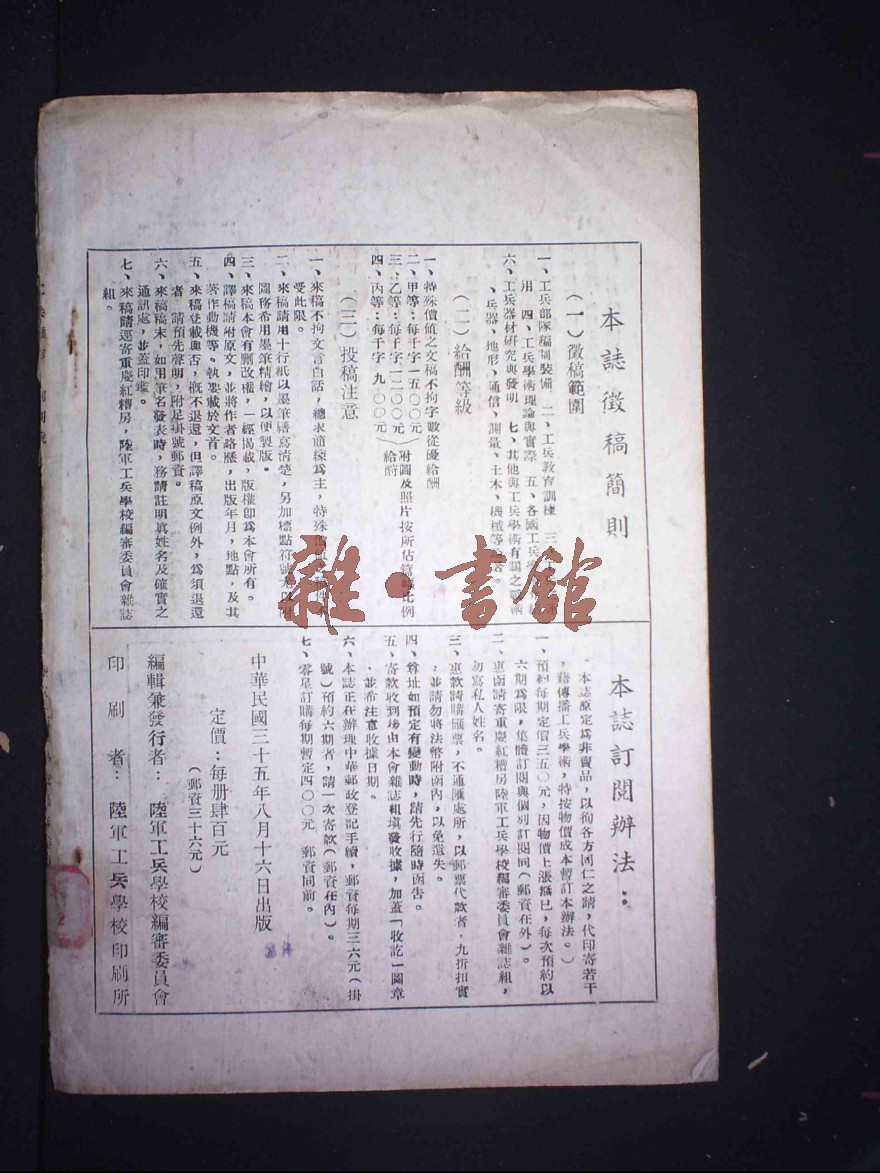 本誌徵稿簡則
(一)徵稿範圍
一、工兵部隊編制裝備 二、工兵教育訓練 三
用 四、工兵學術理論與實際 五、各國工兵學
六、工兵器材研究與發明 七、其他與工兵學術有關之戰術
、兵器、地形、通信、測量、土木、機械等
(二)給酬等級
一、特殊價值之文稿不拘字數從優給酬
二、甲等:每千字一五〇〇元
三、乙等:每千字一二〇〇元
四、丙等:每千字 九〇〇元
附圖及照片按所佔篇幅比例
給酬
(三)投稿注意
一、來稿不拘文言白話,總求簡練爲主,特殊
受此限。
二、來稿請用十行紙以墨筆繕寫清楚,另加標點符號
圖務希用墨筆精繪,以便製版。
三、來稿本會有刪改權,一經揭載,版權卽爲本會所有。
四、譯稿請附原文,並將作者略歷,出版年月,地點,及其
著作動機等。執要載於文首。
五、來稿登載與否,槪不退還,但譯稿原文例外,爲須退還
者,請預先聲明,附足掛號郵資。
六、來稿稿末,如用筆名發表時,務請註明眞姓名及確實之
通訊處,並蓋印鑑。
七、來稿請逕寄重慶紅糟房,陸軍工兵學校編審委員會雜誌
組。
本誌訂閱辦法:
本誌原定爲非賣品,以徇各方同仁之請,代印寄若干
,藉傳播工兵學術,特按物價成本暫訂本辦法。)
一、預約每期定價三五〇元,因物價上漲靡已,每次預約以
六期爲限,集體訂閱與個別訂閱同(郵資在外)。
二、惠函請寄重慶紅糟房陸軍工兵學校編審委員會雜誌組,
勿寫私人姓名。
三、惠款請購匯票,不通匯處所,以郵票代款者,九折扣實
,並請勿將法幣附函內,以免遺失。
四、尊址如預定有變動時,請先行隨時函告。
五、寄款收到後由本會雜誌組塡發收據,加蓋「收訖」圖章
,並希注意收據日期。
六、本誌正在辦理中華郵政登記手續,郵資每期三六元(掛
號)預約六期者,請一次寄款(郵資在內)。
七、零星訂購每期暫定四〇〇元 郵資同前。
中華民國三十五年八月十六日出版
定價:每册肆百元
(郵資三十六元)
編輯兼發行者:陸軍工兵學校編審委員會
印刷者:陸軍工兵學校印刷所
雜·書館